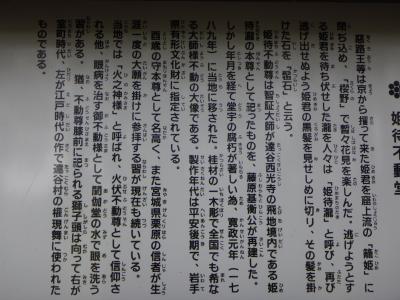 姫待不動堂
悪路王等は京から攫って来た姫君を窟上流の「籠姫」に
閉ぢ込め、「桜野」で暫々花見を楽しんだ。逃げようとす
る姫君を待ち伏せした瀧を人々は「姫待瀧」と呼び、再び
逃げ出せぬよう姫君の黒髪を見せしめに切り、その髪を掛
けた石を「髢石」と云う。
姫待不動尊は智証大師が達谷西光寺の飛地境内である姫
待瀧の本尊として祀ったものを、藤原基衡公が再建した。
しかし年月を経て堂宇の腐朽が著しい為、寛政元年(一七
八九年)に当地に移された。桂材の一木彫で全国でも稀な
る大師様不動の大像である。製作年代は平安後期で、岩手
県有形文化財に指定されている。
酉歳の守本尊として名高く、また宮城県栗原の信者が生
涯一度の大願を掛けに参拝する習が現在も続いている。
当地では「火之神様」と呼ばれ、火伏不動尊として信仰さ
れる他、眼病を治す御不動様として閼伽堂の水で眼を洗う
習がある。猶、不動尊膝前に祀られる獅子頭は向って右が
室町時代、左が江戸時代の作で達谷村の権現舞に使われた
ものである。